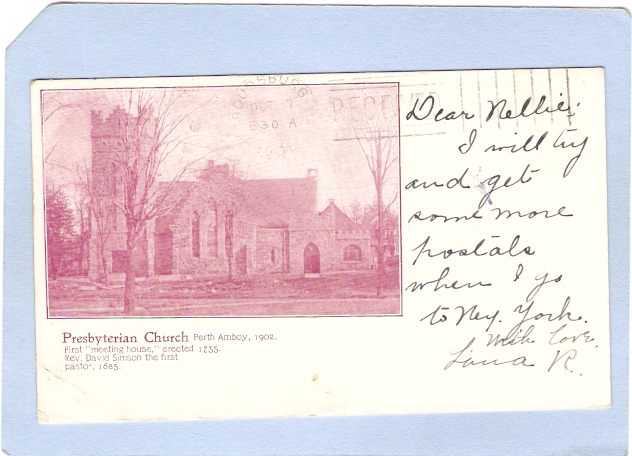 OCT 7
630 A
RECEIVED
Dear Nellie:
I will try
and get
some more
postals
when I go
to Ney. York.
With love.
R.
Presbyterian Church Perth Amboy, 1902.
First "meeting house," erected 1735.
Rev. David Simson the first
pastor, 1685.